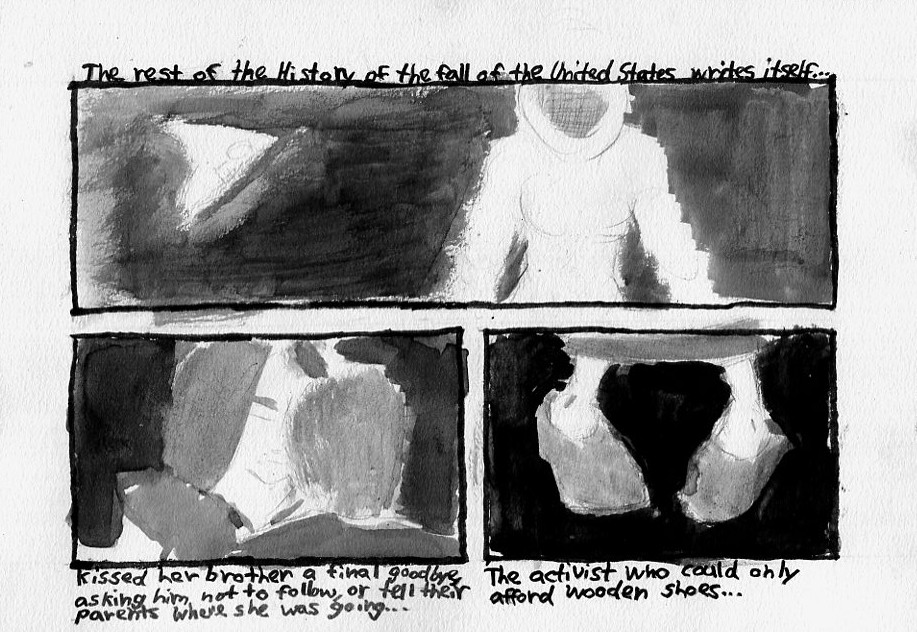 The rest of the History of the fall of the United States writes itself...
Kissed her brother a final goodbye,
asking him not to follow, or tell their
parents where she was going...
The activist who could only
afford wooden shoes...